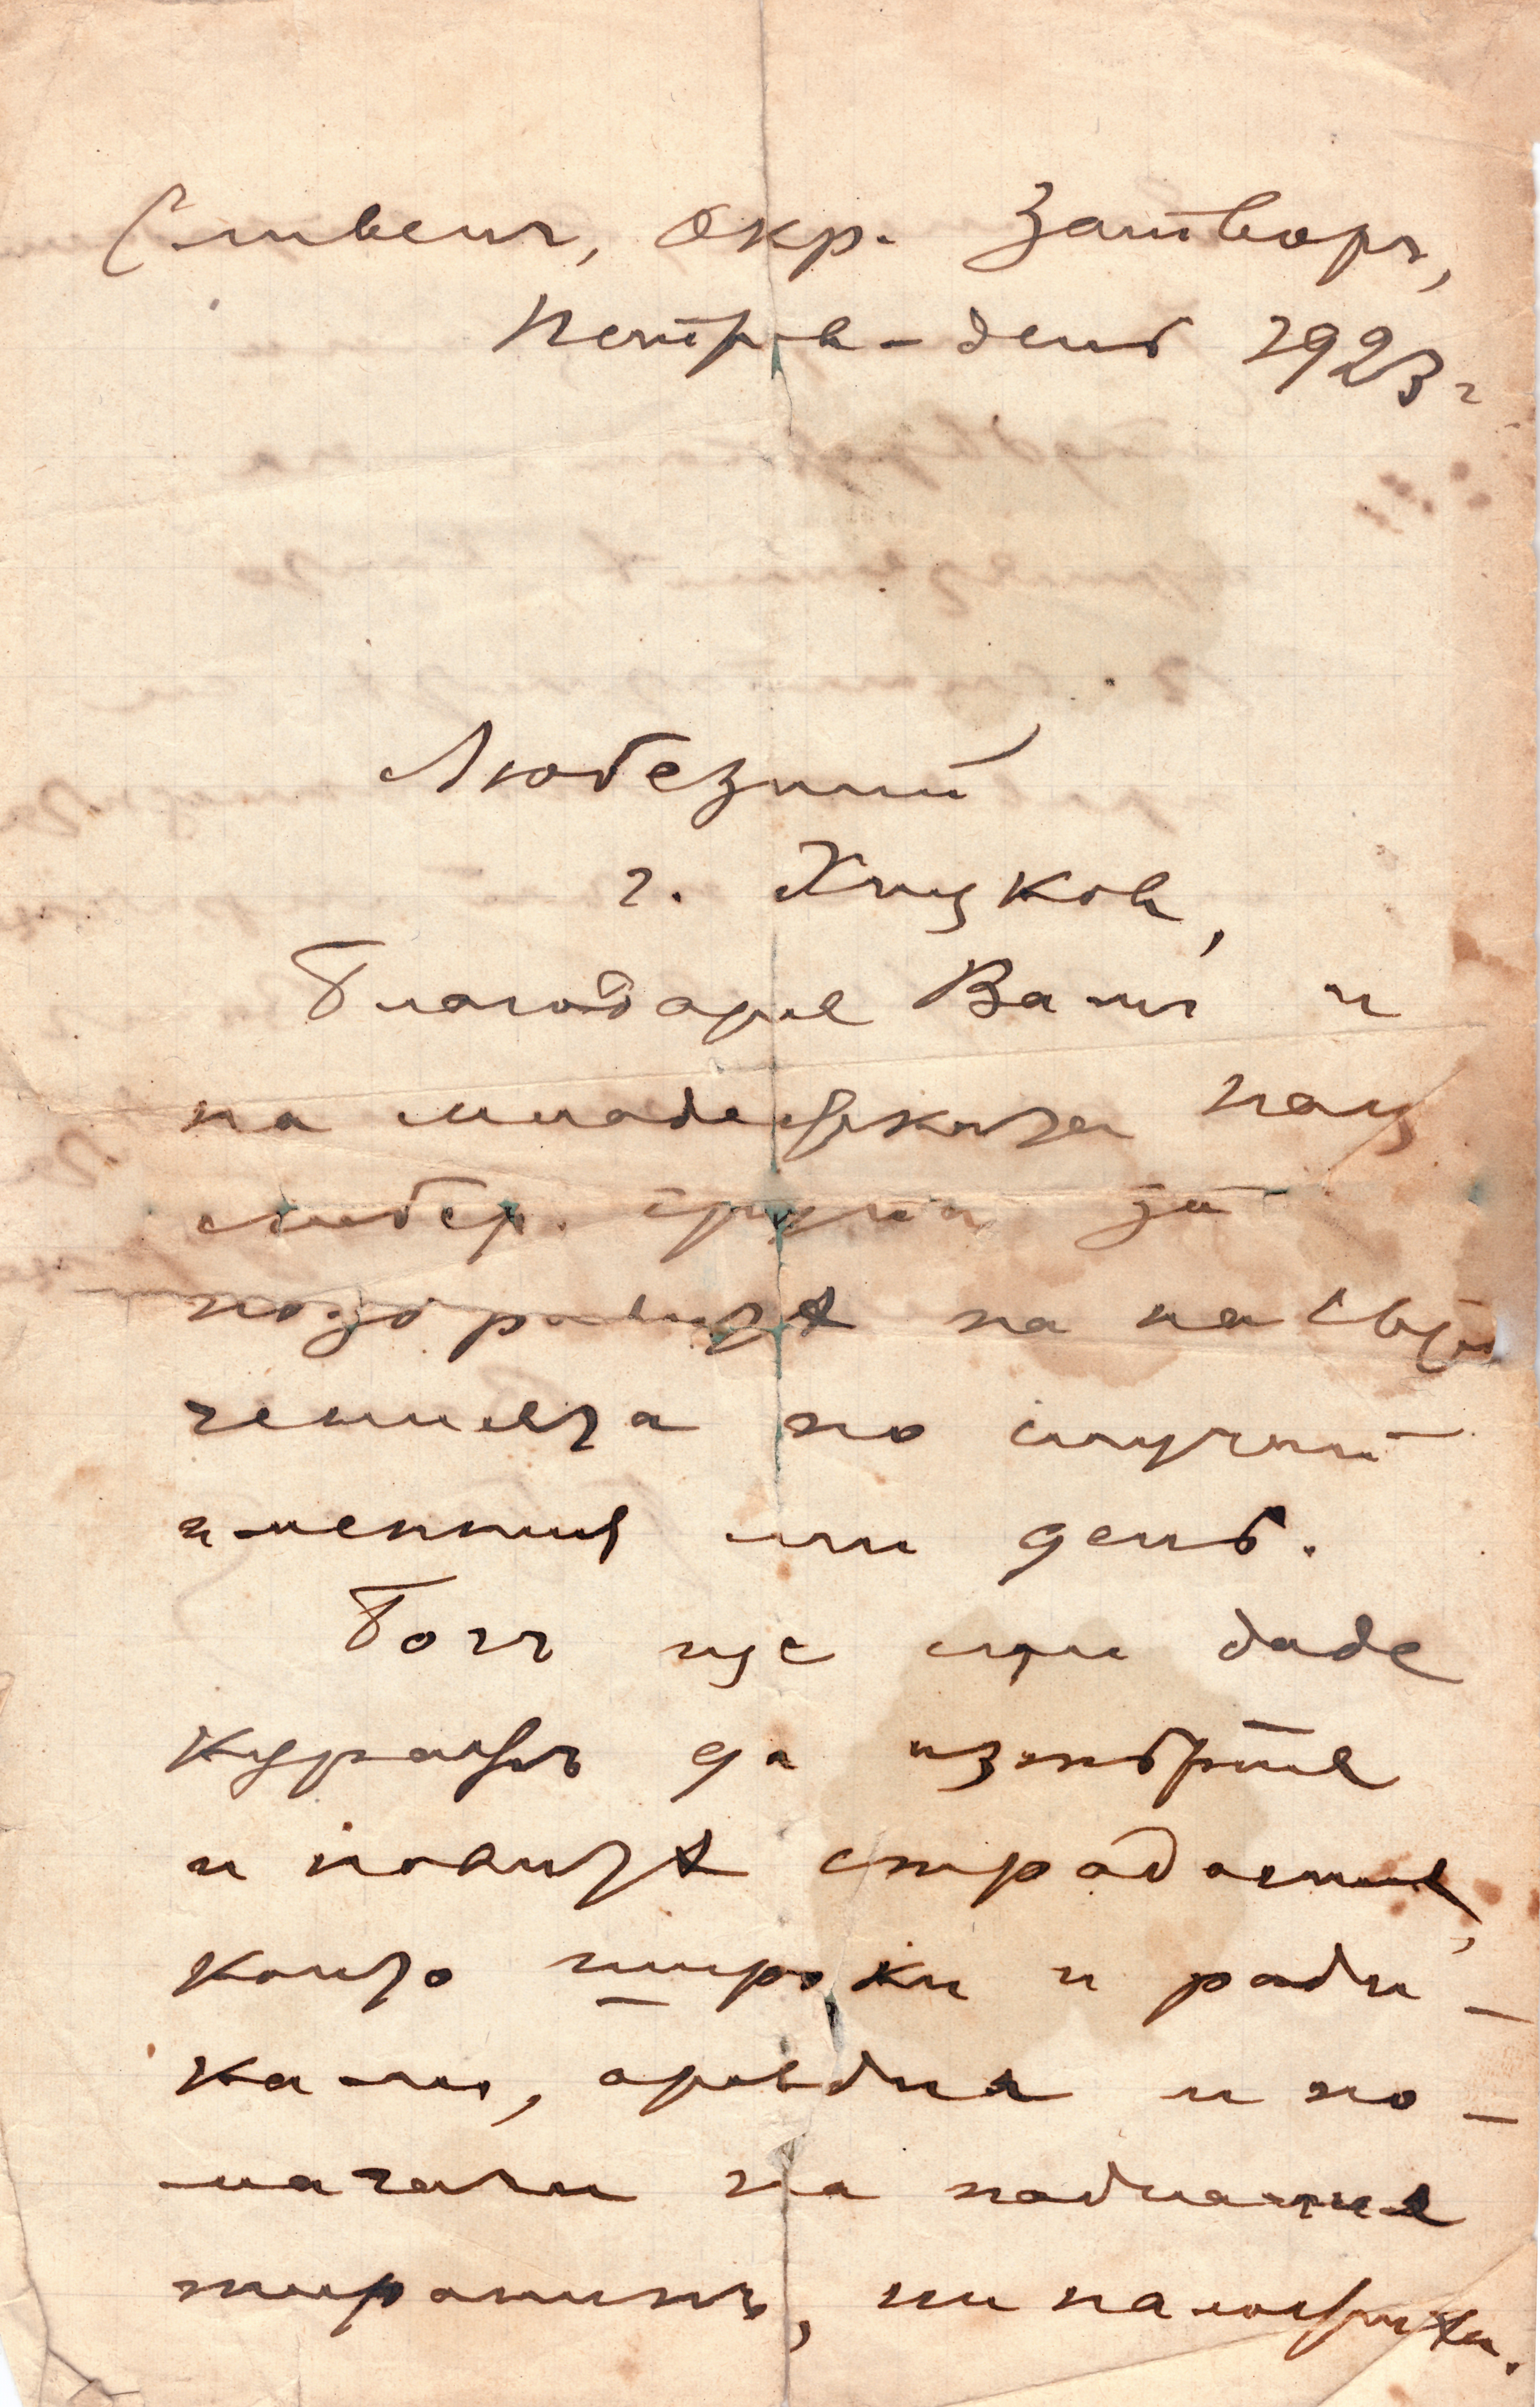 Сливенъ, Окр. Затворъ,
Петров-день 1923 г
Любезний
г. Хицков,
Благодаря Вам и
на младежката нац
либер. група за
поздравитѣ на на свър
чениета по случай
имений ми день.
Богъ ще ми даде
куражъ да изтърпя
и новитѣ страдания,
които широки и ради-
кали, оревдиа и по-
магачи на падналия
тиранинъ, ни наложиха.